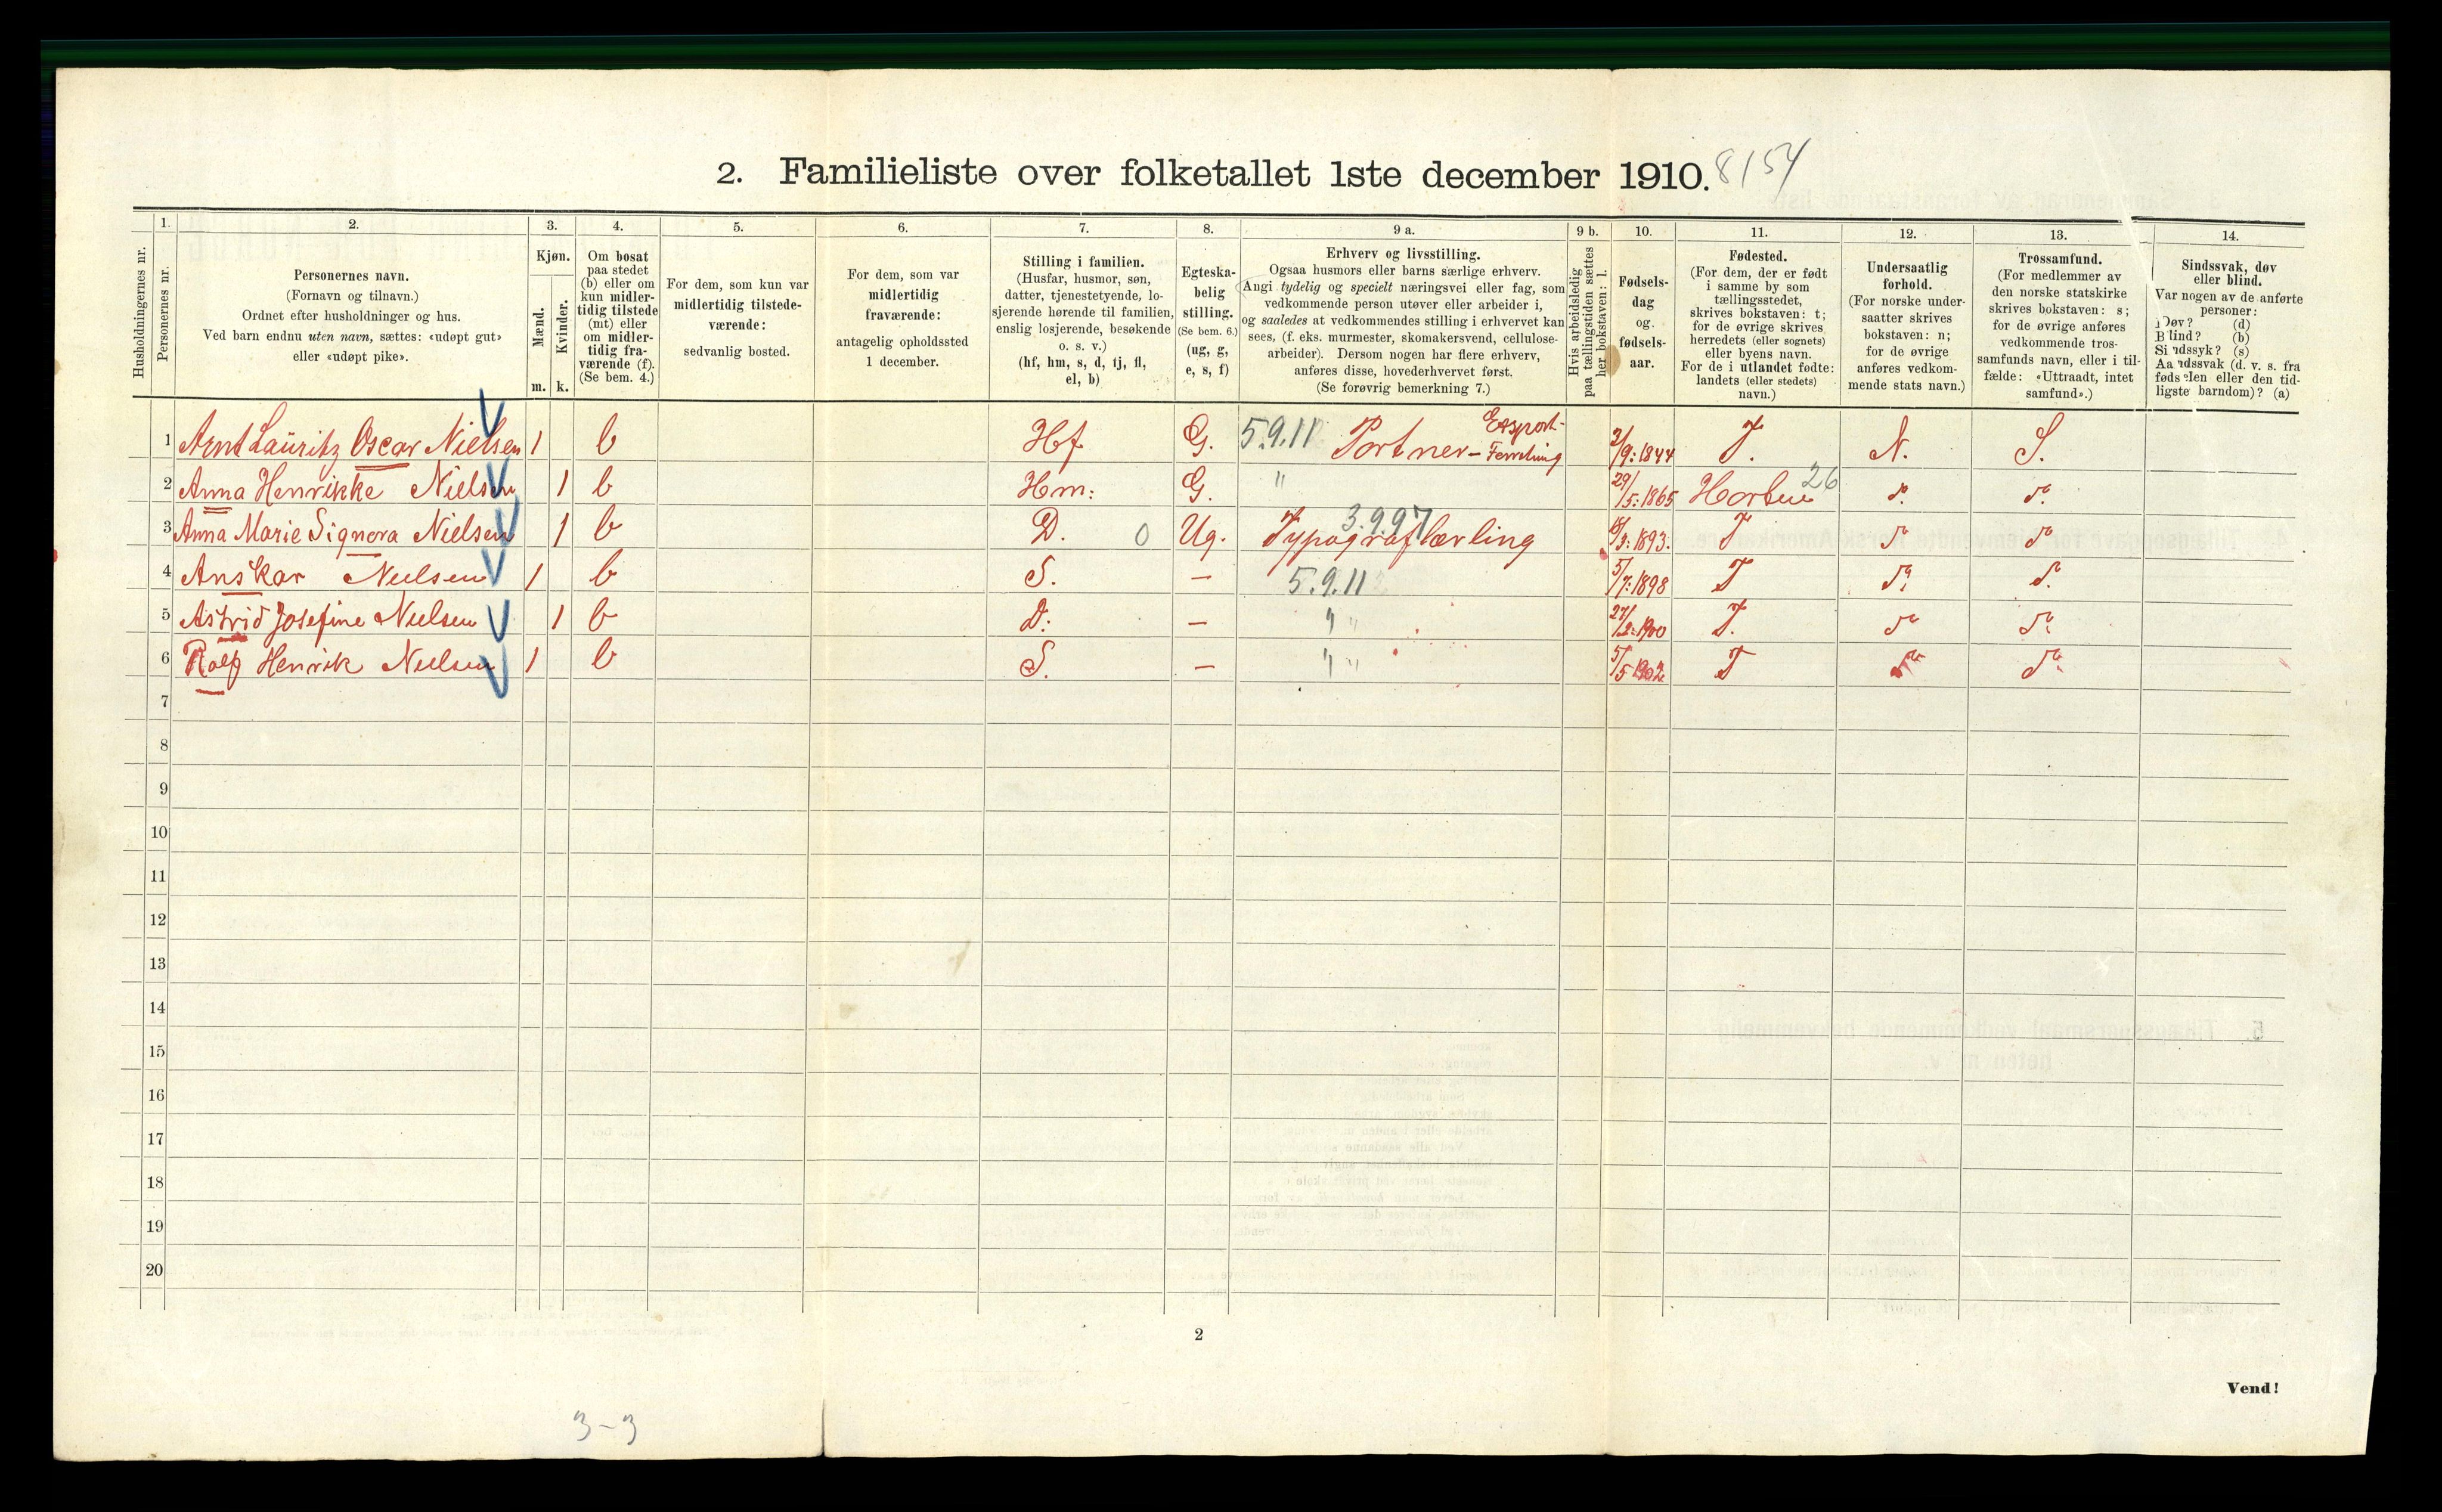 2. Familieliste over folketallet 1ste december 1910. 8154
Husholdningernes nr.
1.
Personernes nr.
2.
Personernes navn.
(Fornavn og tilnavn.)
Ordnet efter husholdninger og hus.
Ved barn endnu uten navn, sættes: «udøpt gut»
eller «udøpt pike».
3.
Kjøn.
Mænd.
m.
Kvinder.
k.
4.
Om bosat
paa stedet
(b) eller om
kun midler-
tidig tilstede
(mt) eller
om midler-
tidig fra-
værende (f).
(Se bem. 4.)
5.
For dem, som kun var
midlertidig tilstede-
værende:
sedvanlig bosted.
6.
For dem, som var
midlertidig
fraværende:
antagelig opholdssted
1 december.
7.
Stilling i familien.
(Husfar, husmor, søn,
datter, tjenestetyende, lo-
sjerende hørende til familien,
enslig losjerende, besøkende
o. s. v.)
(hf, hm, s, d, tj, fl,
el, b)
8.
Egteska-
belig
stilling.
(Se bem. 6.)
(ug, g,
e, s, f)
9 a.
Erhverv og livsstilling.
Ogsaa husmors eller barns særlige erhverv.
Angi tydelig og specielt næringsvei eller fag, som
vedkommende person utøver eller arbeider i,
og saaledes at vedkommendes stilling i erhvervet kan
sees, (f. eks. murmester, skomakersvend, cellulose-
arbeider). Dersom nogen har flere erhverv,
anføres disse, hovederhvervet først.
(Se forøvrig bemerkning 7.)
9 b.
Hvis arbeidsledig
paa tællingstiden sættes
her bokstaven: l.
10.
Fødsels-
dag
og
fødsels-
aar.
11.
Fødested.
(For dem, der er født
i samme by som
tællingsstedet,
skrives bokstaven: t;
for de øvrige skrives
herredets (eller sognets)
eller byens navn.
For de i utlandet fødte:
landets (eller stedets)
navn.)
12.
Undersaatlig
forhold.
(For norske under-
saatter skrives
bokstaven: n;
for de øvrige
anføres vedkom-
mende stats navn.)
13.
Trossamfund.
(For medlemmer av
den norske statskirke
skrives bokstaven: s;
for de øvrige anføres
vedkommende tros-
samfunds navn, eller i til-
fælde: «Uttraadt, intet
samfund».)
14.
Sindssvak, døv
eller blind.
Var nogen av de anførte
personer:
Døv? (d)
Blind? (b)
Sindssyk? (s)
Aandssvak (d. v. s. fra
fødselen eller den tid-
ligste barndom)? (a)
1 Arnt Lauritz Oscar Nielsen 1 b Hf G. 5.9.11 Portner - 3/9:1844 T. N. S.
2 Anna Henrikke Nielsen 1 b Hm: G. " 29/5:1865 Horten 26 do do
3 Anna Marie Signora Nielsen 1 b D. 0 Ug. Typograflærling 3.9.97 1893. T do do
4 Anskar Nielsen 1 b S. — 5.9.11 5/7:1898 T do do
5 Astrid Josefine Nielsen 1 b D: — " 27/2:1900 T. do do
6 Rolf Henrik Nielsen 1 b S. — " 5/5 1902 T do do
7
8
9
10
11
12
13
14
15
16
17
18
19
20
2
Vend!
3-3